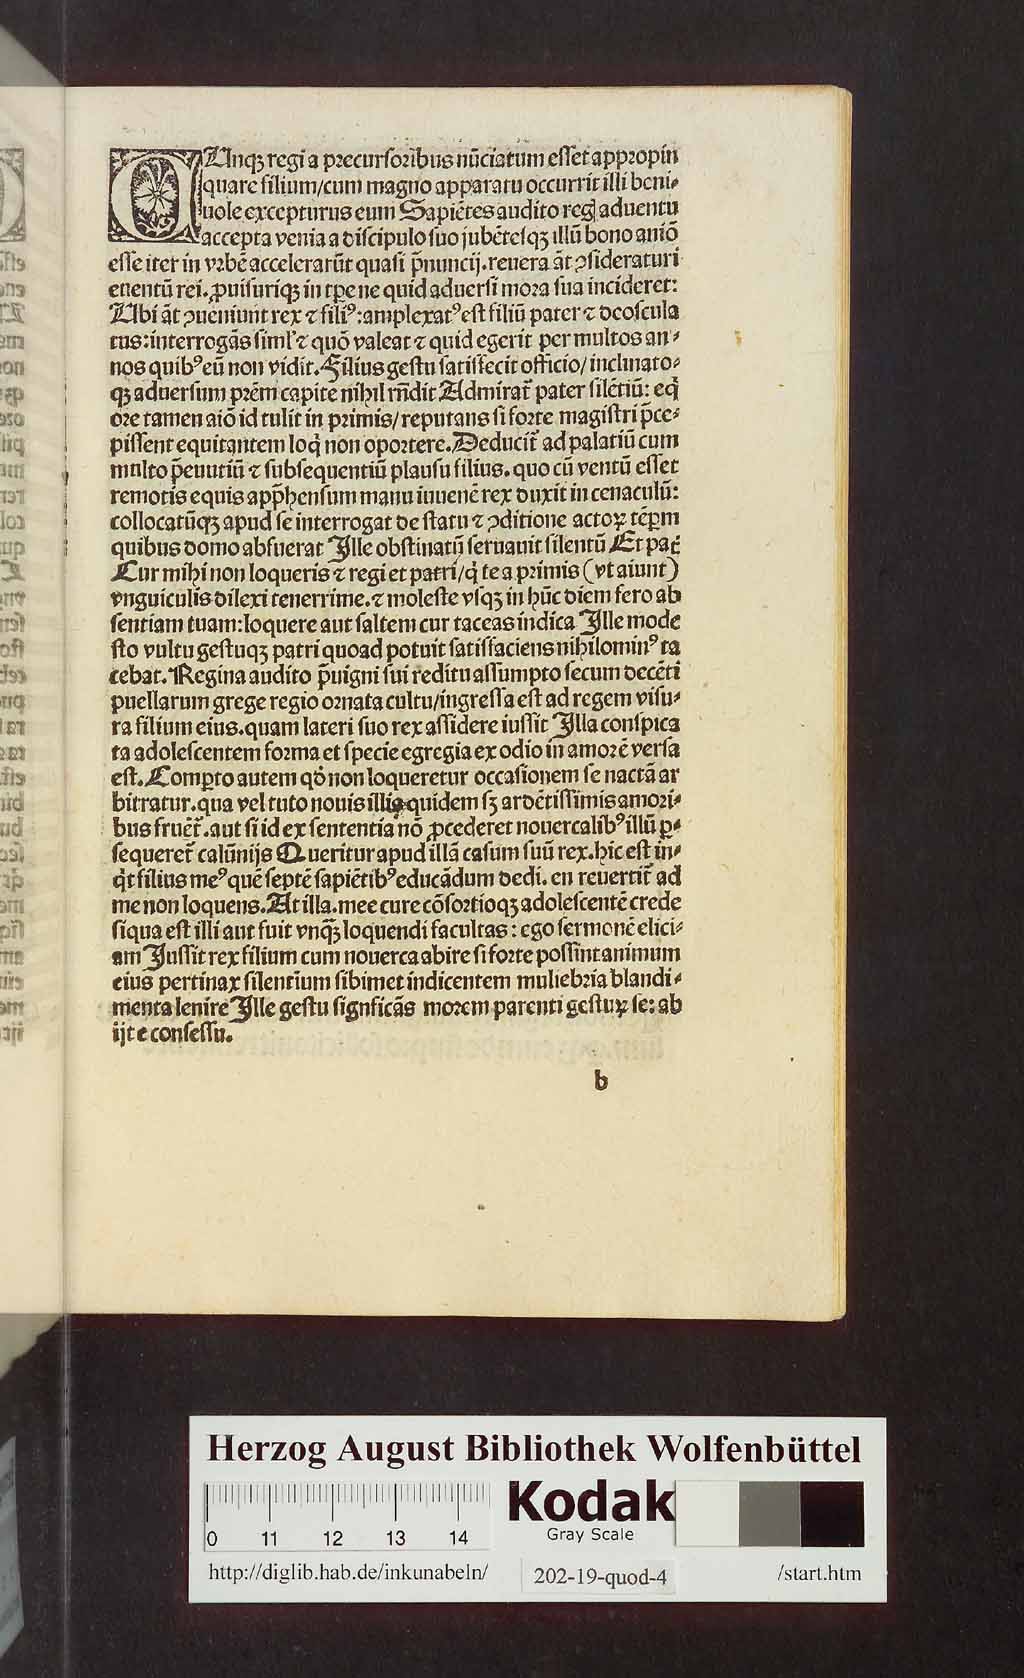 CUnqꝫ regi a precursoribus nūciatum esset appropin
quare filium/cum magno apparatu occurrit illi beni⸗
uole excepturus eum Sapiētes audito regꝭ aduentu
accepta venia a discipulo suo jubētesqꝫ illū bono aniō
esse iter in vrbē accelerarūt quasi p̄nuncij.reuera āt ꝯsideraturi
euentū rei.ꝓuisuriqꝫ in tp̄e ne quid aduersi mora sua incideret:
Ubi āt ꝯueniunt rex ⁊ filiꝰ:amplexatꝰ est filiū pater ⁊ deoscula
tus:interrogās siml' ⁊ quō valeat ⁊ quid egerit per multos an⸗
nos quibꝰ eū non vidit.Filius gestu satisfecit officio/inclinato⸗
qꝫ aduersum prēm capite nihil rn̄dit Admirat᷑ pater silētiū: eq̄
ore tamen aiō id tulit in primis/reputans si forte magistri p̄ce⸗
pissent equitantem loq̇ non oportere.Deducit᷑ ad palatiū cum
multo p̄euutiū ⁊ subsequentiū plausu filius.quo cū ventū esset
remotis equis app̄hensum manu iuuenē rex duxit in cenaculū:
collocatūqꝫ apud se interrogat de statu ⁊ ꝯditione actoꝝ tēpꝝm
quibus domo absuerat Ille obstinatū seruauit silentū Et pat᷑
Cur mihi non loqueris ⁊ regi et patri/q̇ te a primis (vt aiunt)
vnguiculis dilexi tenerrime.⁊ moleste vsqꝫ in hūc diem fero ab
sentiam tuam:loquere aut saltem cur taceas indica Ille mode
sto vultu gestuqꝫ patri quoad potuit satisfaciens nihilominꝰ ta
cebat.Regina audito p̄uigni sui reditu assumpto secum decēti
puellarum grege regio ornata cultu/ingressa est ad regem visu⸗
ra filium eius.quam lateri suo rex assidere iussit Illa conspica
ta adolescentem forma et specie egregia ex odio in amorē versa
est.Comꝑto autem qḋ non loqueretur occasionem se nactā ar
bitratur.qua vel tuto nouis illis quidem sꝫ ardētissimis amori⸗
bus fruēt᷑.aut si id ex sententia nō ꝓcederet nouercalibꝰ illū ꝑ⸗
sequeret᷑ calūnijs Queritur apud illā casum suū rex.hic est in⸗
q̇t filius meꝰ quē septē sapiētibꝰ educādum dedi.en reuertit᷑ ad
me non loquens.At illa.mee cure cōsortioqꝫ adolescentē crede
siqua est illi aut fuit vnq̄ꝫ loquendi facultas: ego sermonē elici⸗
am Jussit rex filium cum nouerca abire si forte possint animum
eius pertinax silentium sibimet indicentem muliebria blandi⸗
menta lenire Ille gestu signficās morem parenti gestuꝝ se: ab
ijt e consessu.
b
Herzog August Bibliothek Wolfenbüttel
0 11 12 13 14
Kodak
Gray Scale
http://diglib.hab.de/inkunabeln/ 202-19-quod-4 /start.htm